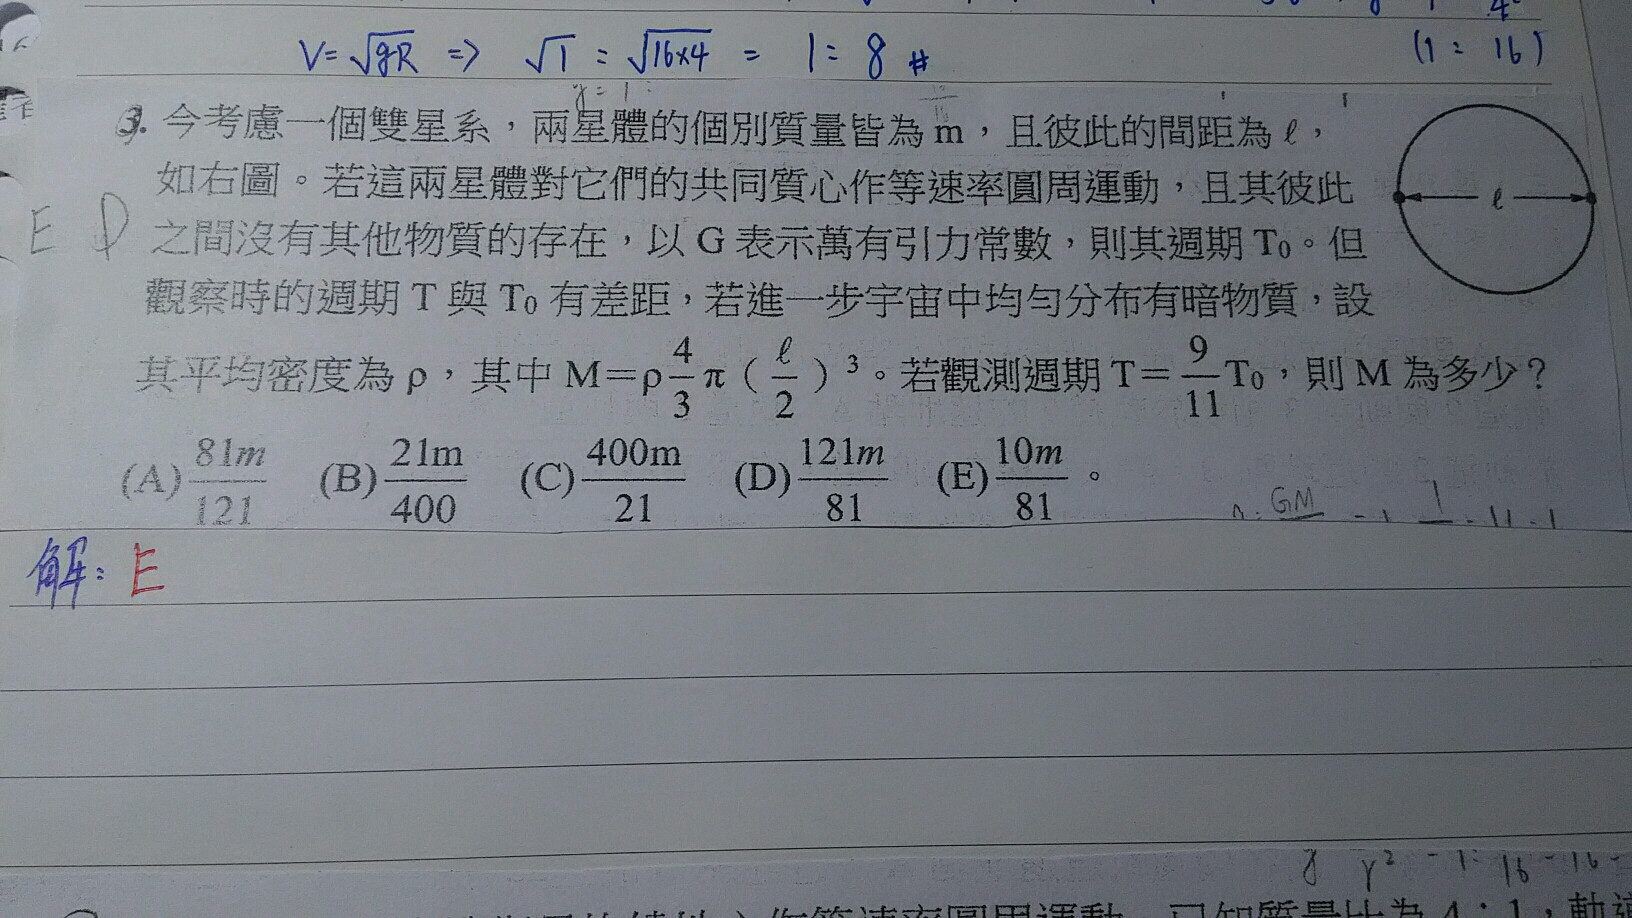 V=√gR ⇒ √1 : √16×4 = 1:8 #
(1 : 16)
3. 今考慮一個雙星系，兩星體的個別質量皆為 m，且彼此的間距為 ℓ，
如右圖。若這兩星體對它們的共同質心作等速率圓周運動，且其彼此
ℓ
E D 之間沒有其他物質的存在，以 G 表示萬有引力常數，則其週期 T₀。但
觀察時的週期 T 與 T₀ 有差距，若進一步宇宙中均勻分布有暗物質，設
其平均密度為 ρ，其中 M＝ρ4/3π（ℓ/2）³。若觀測週期 T＝9/11T₀，則 M 為多少？
(A)81m/121 (B)21m/400 (C)400m/21 (D)121m/81 (E)10m/81。
解: E